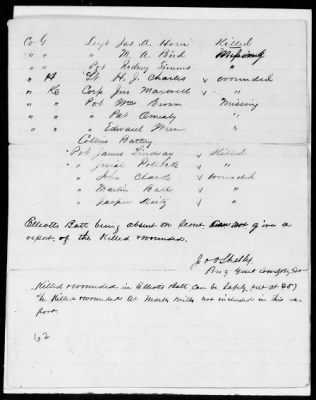 Co G Sergt Jas A. Horn Killed
" " " M. A. Bird Missing
" " Pvt Rodney Simms "
" H Lt H. J. Charles v wounded
" K Corp Jno Maxwell v "
" " Pvt Wm Brown Missing
" " " Pat "
" " " Edward Wren "
Collins Battery
Pvt James Lindsay v Killed
" Josiah v "
" John Clark v wounded
" Martin Ball v "
" Jasper v "
Elliotts Batt being absent on Scout can not give a
report, of the Killed & wounded.
Jo O Shelby
Brig Genl Comdg
Killed & wounded in Elliotts Batt can be safely put at
The Killed & wounded At Marks Mills not included in this re
port
62